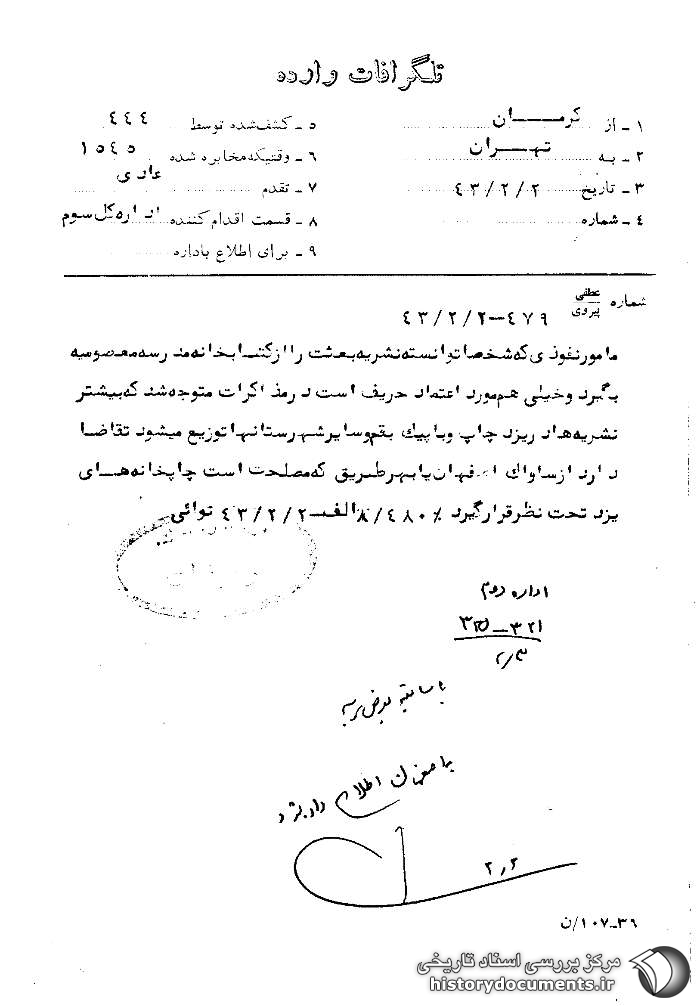 تلگرافات وارده
۱ - از کرمـــان
۲ - به تهـــران
۳ - تاریخ ۴۳/۲/۲
۴ - شماره
۵ - کشف‌شده توسط ۴۴۴
۶ - وقتیکه مخابره شده ۱۵۴۵
۷ - تقدم عادی
۸ - قسمت اقدام‌کننده اداره کل سوم
۹ - برای اطلاع باداره
شماره عطفی
پیروی
۴۷۹-۴۳/۲/۲
مامور نفوذی که شخصا توانسته نشریه بعثت را از کتابخانه مدرسه معصومیه
بگیرد و خیلی هم مورد اعتماد حریف است در مذاکرات متوجه شد که بیشتر
نشریه‌ها در یزد چاپ و با پیک بقم و سایر شهرستانها توزیع میشود تقاضا
دارد از ساواک اصفهان یا بهر طریق که مصلحت است چاپخانه‌هــای
یزد تحت نظر قرار گیرد ٪ ۸/۴۸۰الف-۴۳/۲/۲ نوائی
اداره دوم
۳۲۱
۲/۳
با سابقه بعرض برسد
به اصفهان اطلاع داده شود
۲٫۲
۳۶-۱۰۷/ن
مرکز بررسی اسناد تاریخی
historydocuments.ir